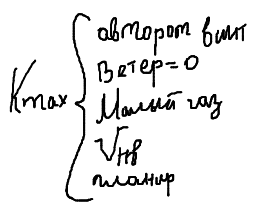 Kmax
автором винт
Ветер=0
Малый газ
Vнв
планир